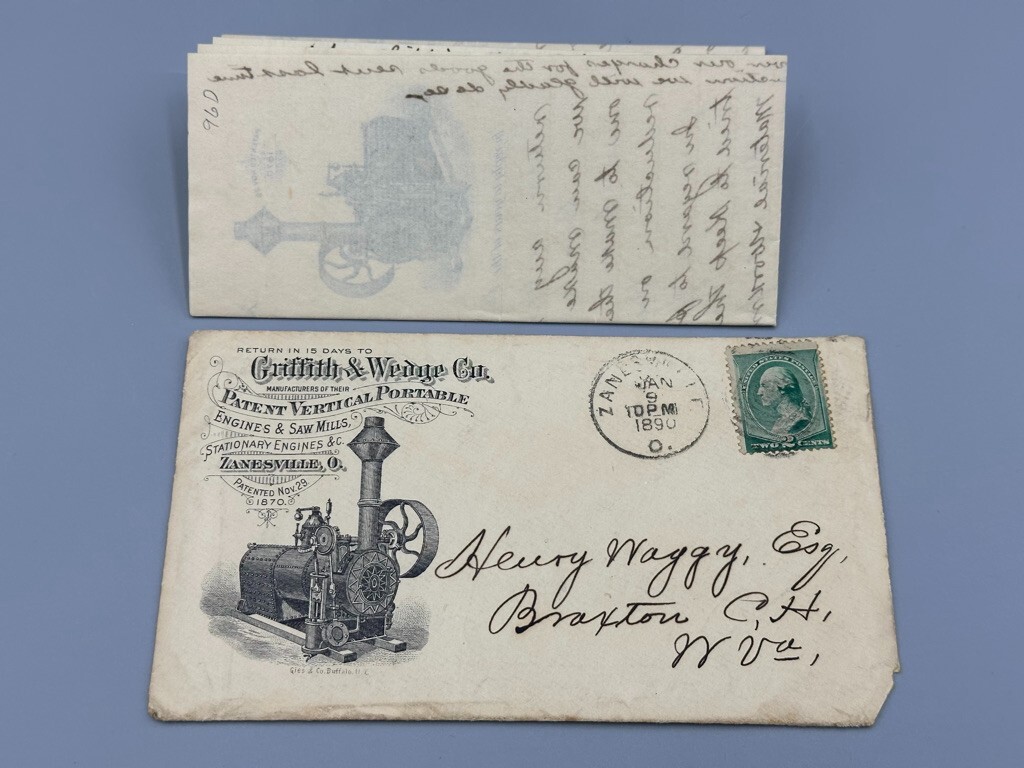 96D
our charges for the goods sent last time
we will
Material
to keep the
In regard to
reduction on
one to make the
we can make
return any
RETURN IN 15 DAYS TO
Griffith & Wedge Co.
MANUFACTURERS OF THEIR
PATENT VERTICAL PORTABLE
ENGINES & SAW MILLS,
STATIONARY ENGINES &C.
ZANESVILLE, O.
PATENTED NOV. 29
1870.
Gies & Co. Buffalo, N.Y.
ZANESVILLE
JAN
9
10 PM
1890
O.
UNITED STATES POSTAGE
TWO 2 CENTS
Henry Waggy, Esq,
Braxton C, H,
W Va,